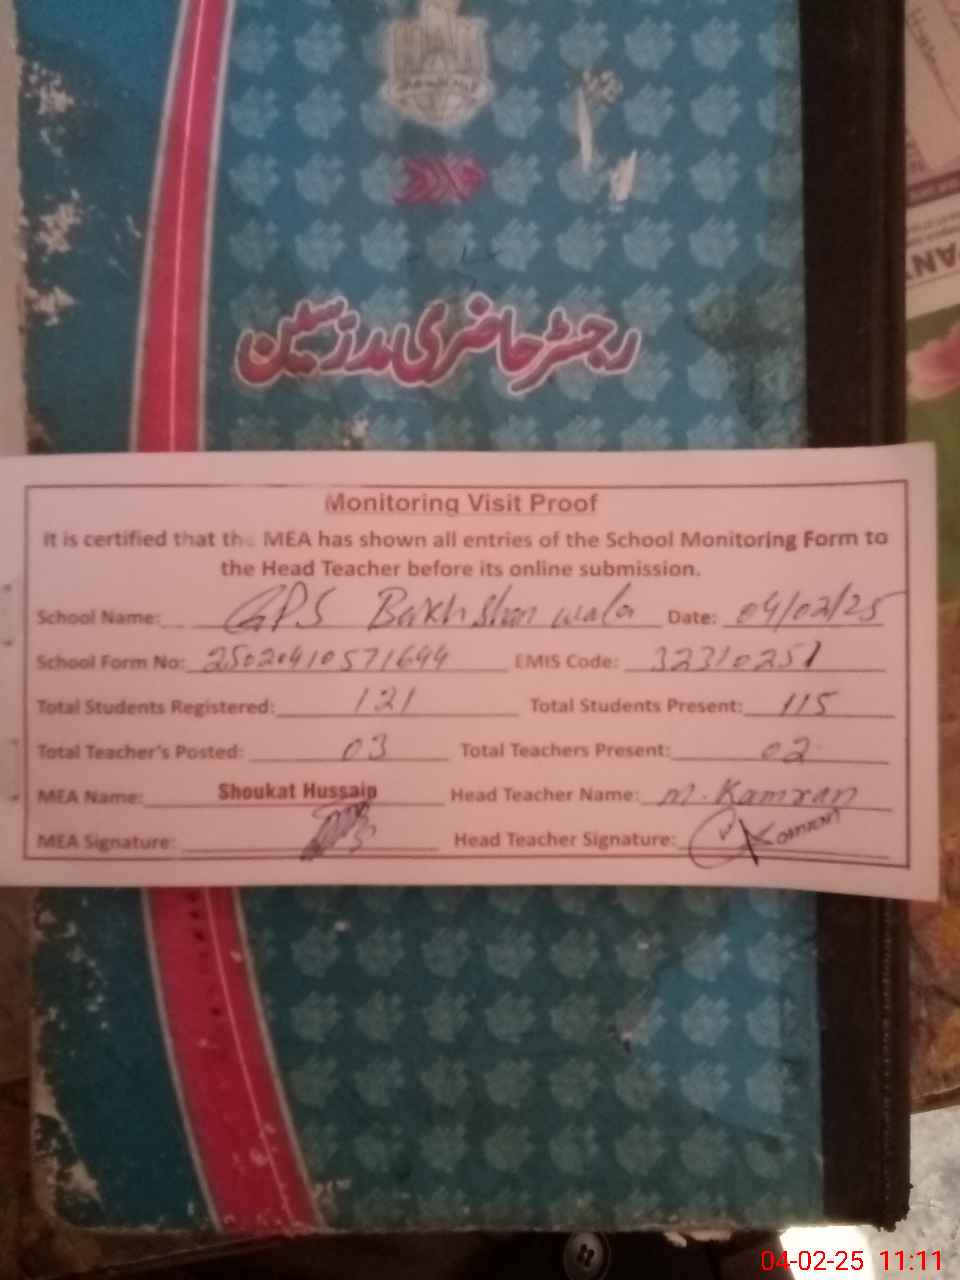 رجسٹر حاضری مدرسین
Monitoring Visit Proof
It is certified that the MEA has shown all entries of the School Monitoring Form to
the Head Teacher before its online submission.
School Name: GPS Bakhshan wala Date: 04/02/25
School Form No: 25020410571644 EMIS Code: 32310251
Total Students Registered: 121 Total Students Present: 115
Total Teacher's Posted: 03 Total Teachers Present: 02
MEA Name: Shoukat Hussain Head Teacher Name: M. Kamran
MEA Signature: Head Teacher Signature:
04-02-25 11:11